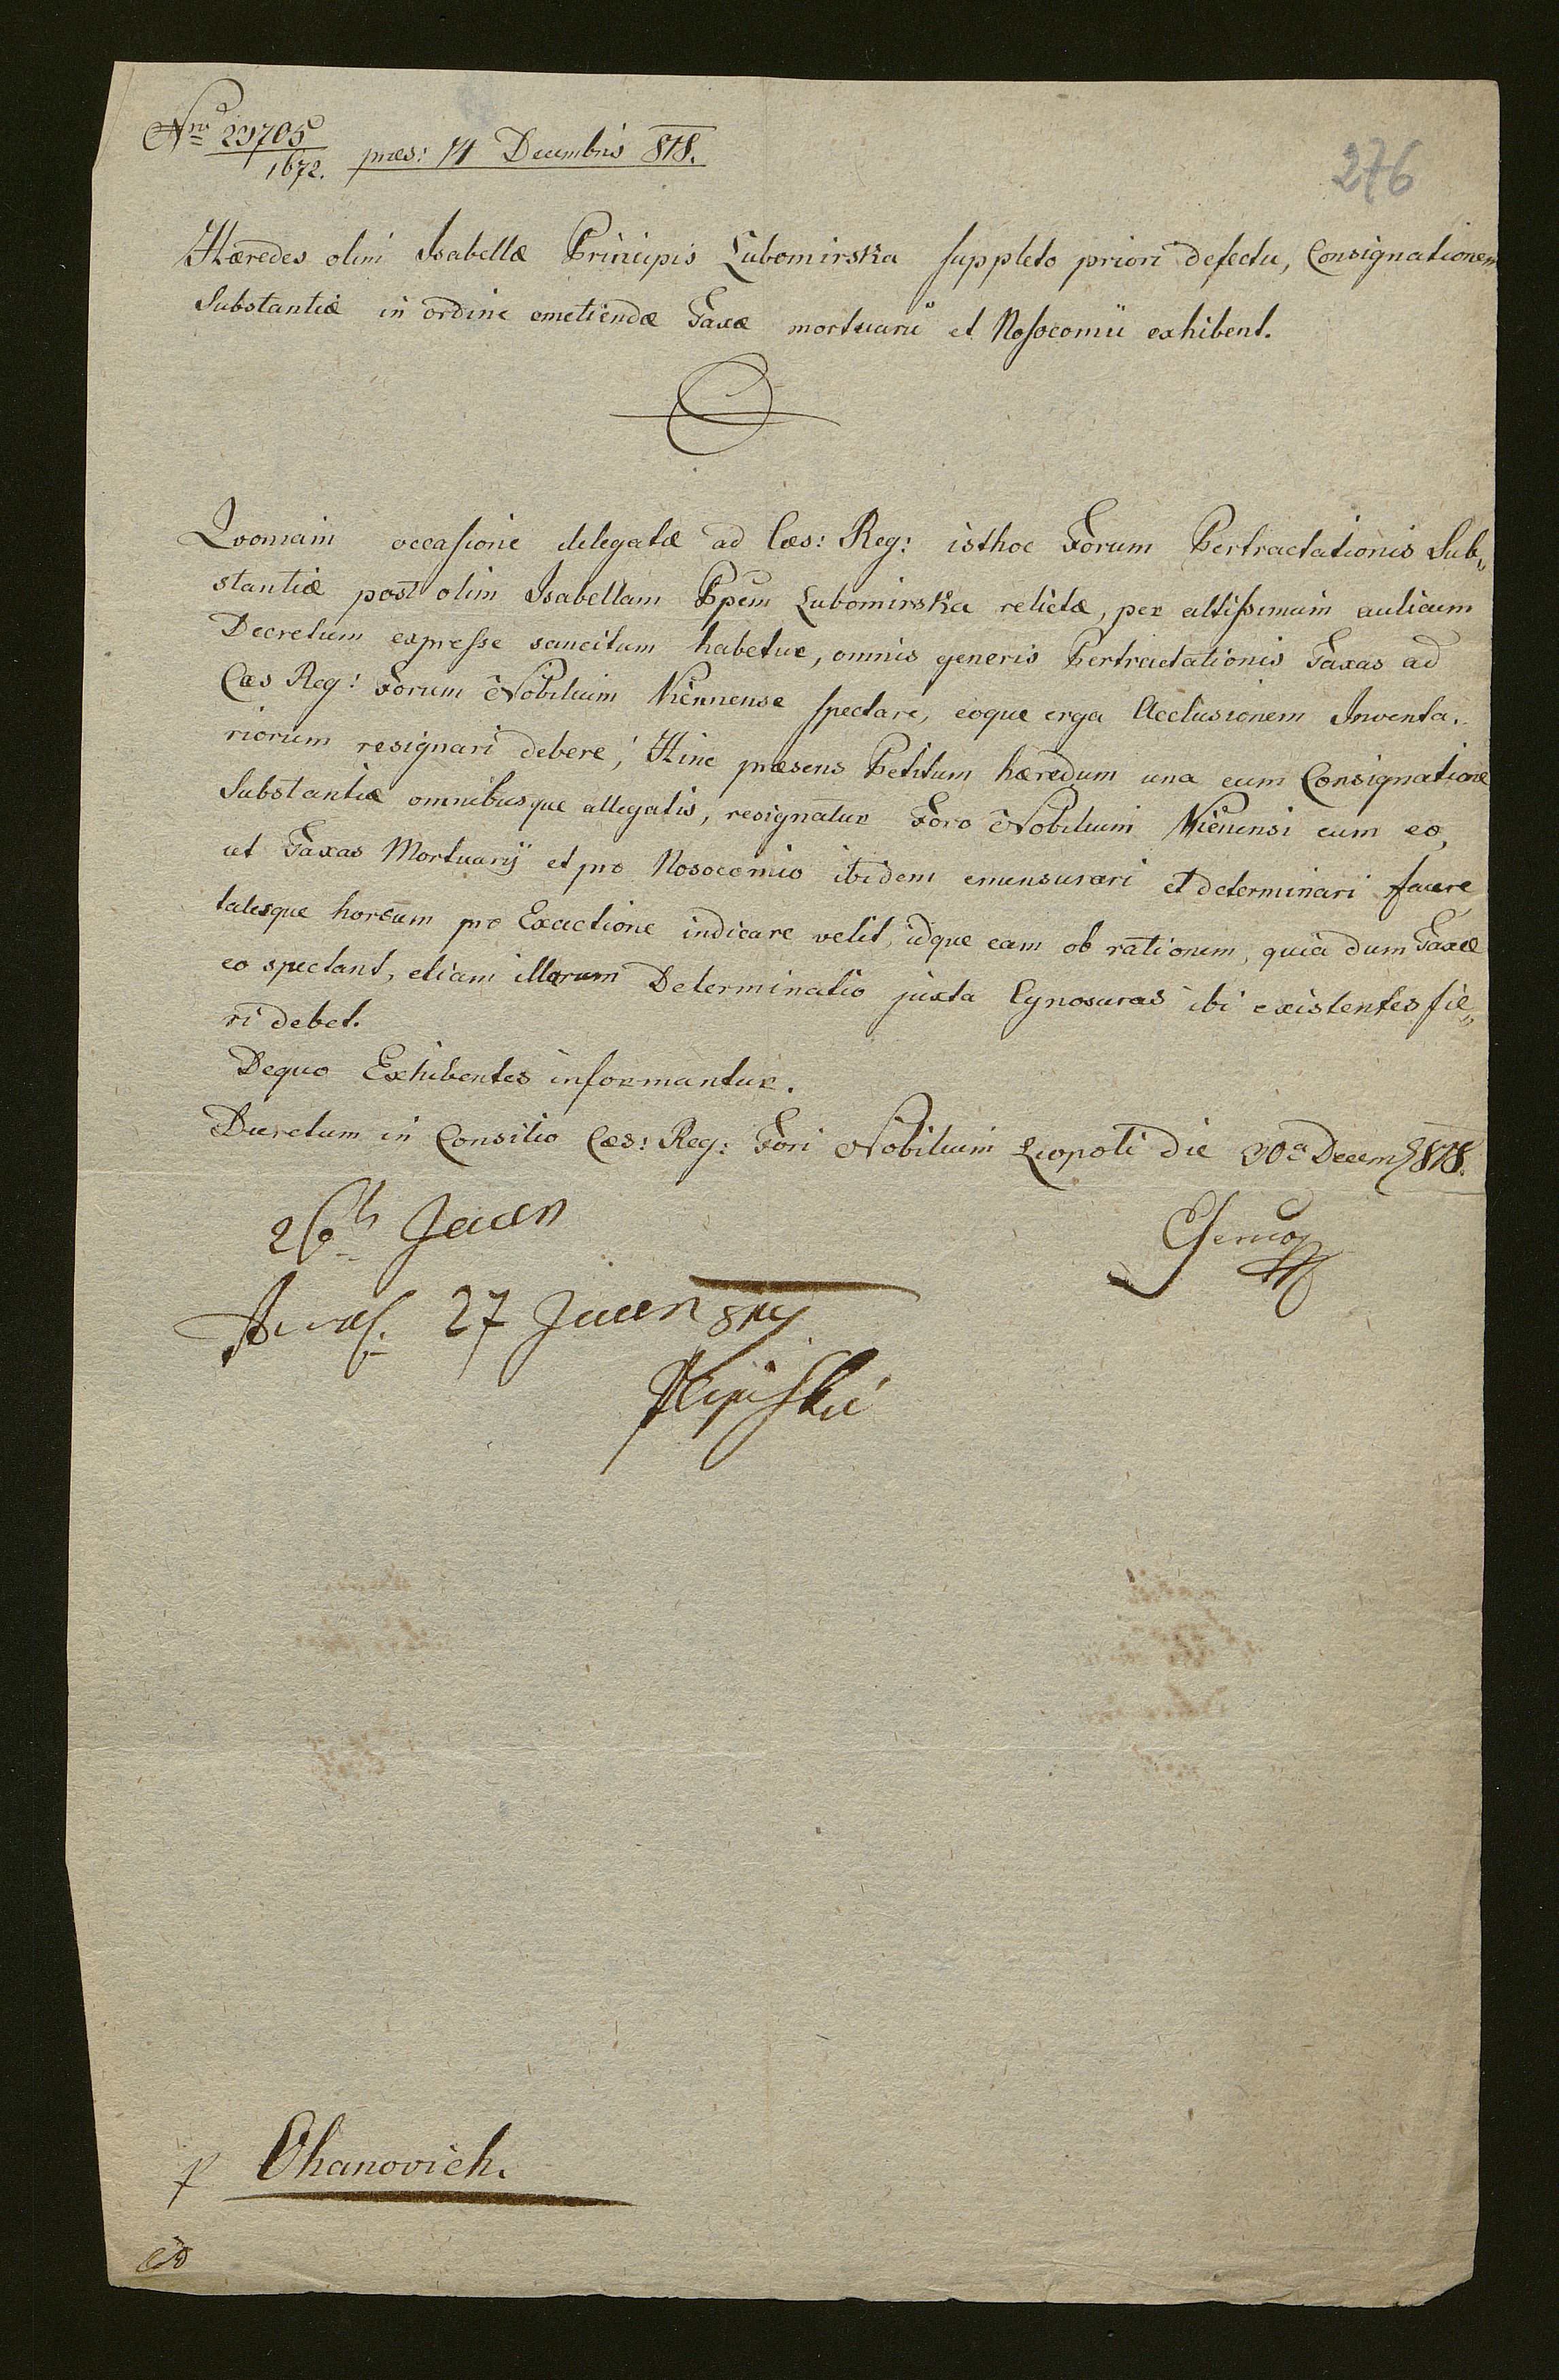 Nro 29705
1672. præs: 14 Decembris 818.
276
Hæredes olim Isabellæ Principis Lubomirska suppleto priori defectu, Consignationem
Substantiæ in ordine emetiendæ Taxæ mortuarii et Nosocomii exhibent.
Quoniam occasione delegatæ ad Cæs: Reg: isthoc Forum Pertractationis Sub„
stantiæ post olim Isabellam Ppem Lubomirska relictæ, per altissimum aulicum
Decretum expresse sancitum habetur, omnis generis Pertractationis Taxas ad
Cæs Reg: Forum Nobilium Viennense spectare, eoque erga Acclusionem Inventa„
riorum resignari debere; Hinc præsens Petitum hæredum una cum Consignatione
Substantiæ omnibusque allegatis, resignatur Foro Nobilium Viennensi cum eo,
ut Taxas Mortuarij et pro Nosocomio ibidem emensurari et determinari facere,
talesque horsum pro Exactione indicare velit, idque eam ob rationem, quia dum Taxæ
eo spectant, etiam illarum Determinatio juxta Cynosuras ibi existentes fie„
ri debet.
Dequo Exhibentes informantur.
Decretum in Consilio Cæs: Reg: Fori Nobilium Leopoli die 30a Decemb 818.
26t Jauen
27 Jauen 819
Ohanovich.